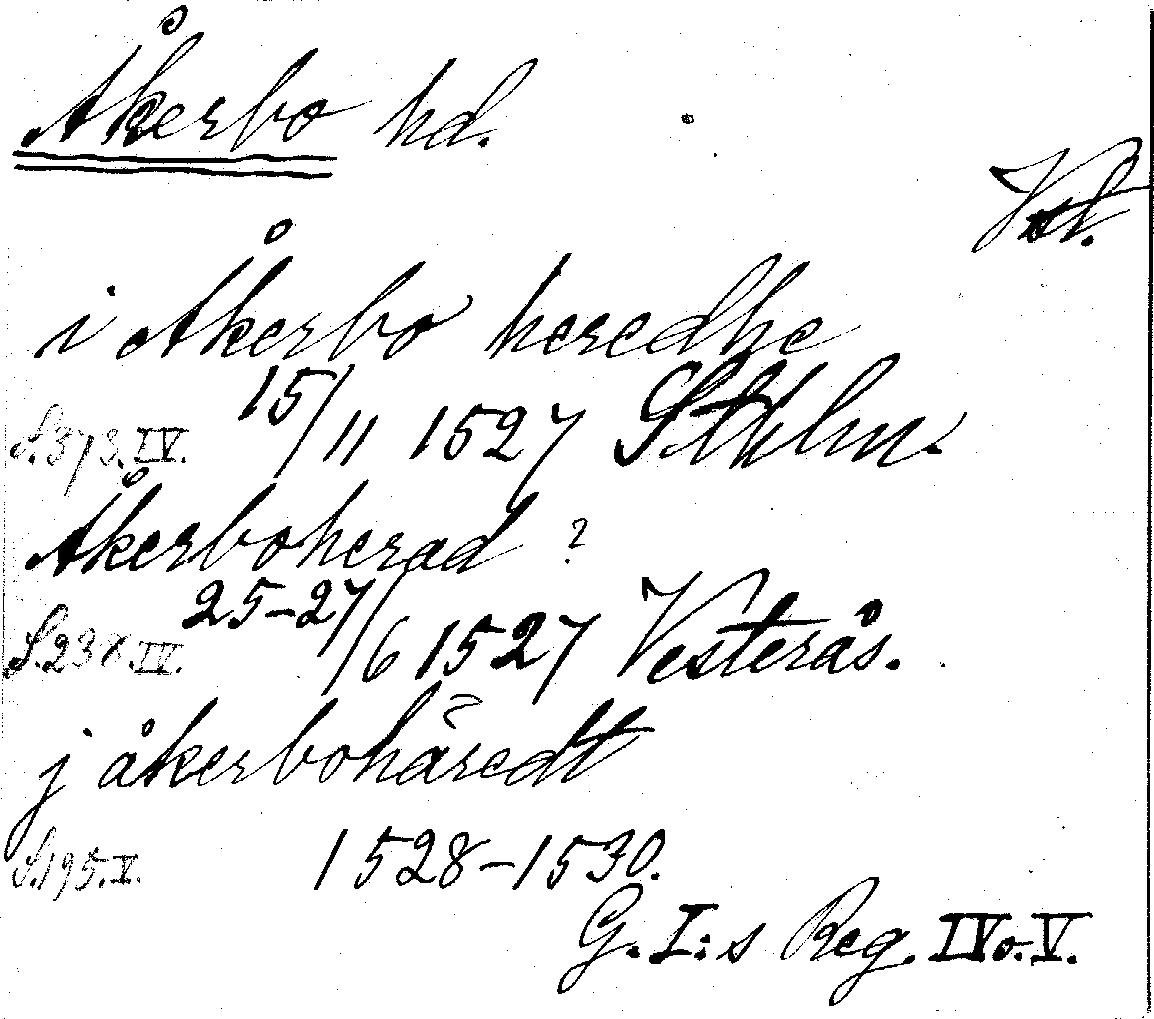 Åkerbo hd.
Vstl.
i Åkerbo heredhe
S.373.IV. 15/11 1527 Sthlm.
Åkerboherad ?
S.238.IV. 25-27/6 1527 Vesterås.
j åkerbohäredt
S.195.V. 1528-1530.
G. I:s Reg. IV o. V.